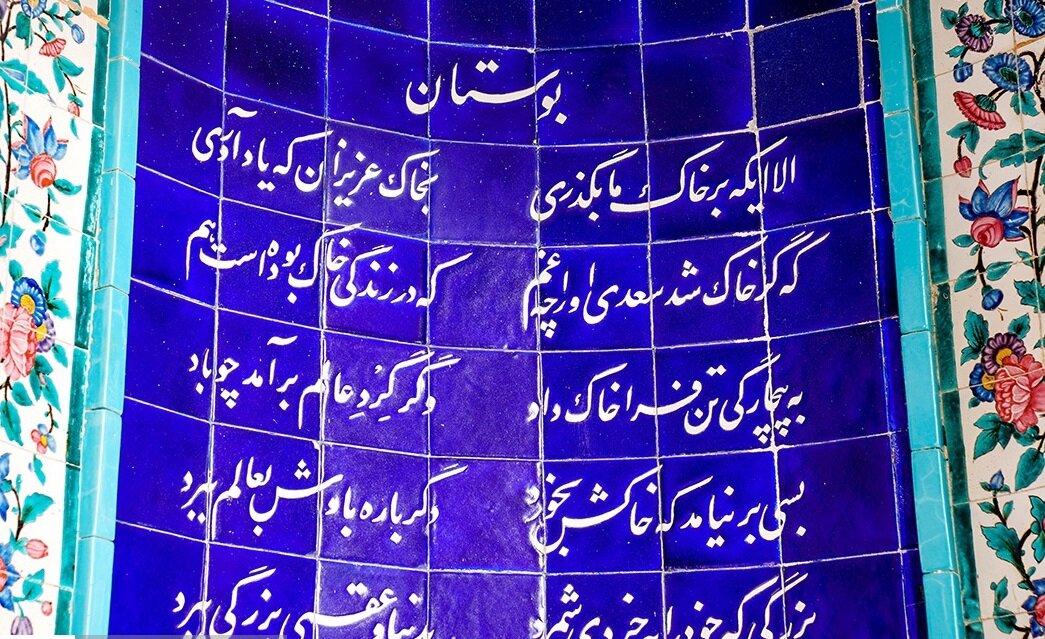 بوستان
الا ایکه بر خاک ما بگذری بخاک عزیزان که یاد آوری
که گر خاک شد سعدی او را چه غم که در زندگی خاک بوده است هم
به بیچارگی تن فرا خاک داد وگر گِردِ عالم برآمد چو باد
بسی برنیامد که خاکش بخورد دگر باره بادش بعالم ببرد
بزرگی که خود را به خردی شمرد بدنیا و عقبی بزرگی ببرد